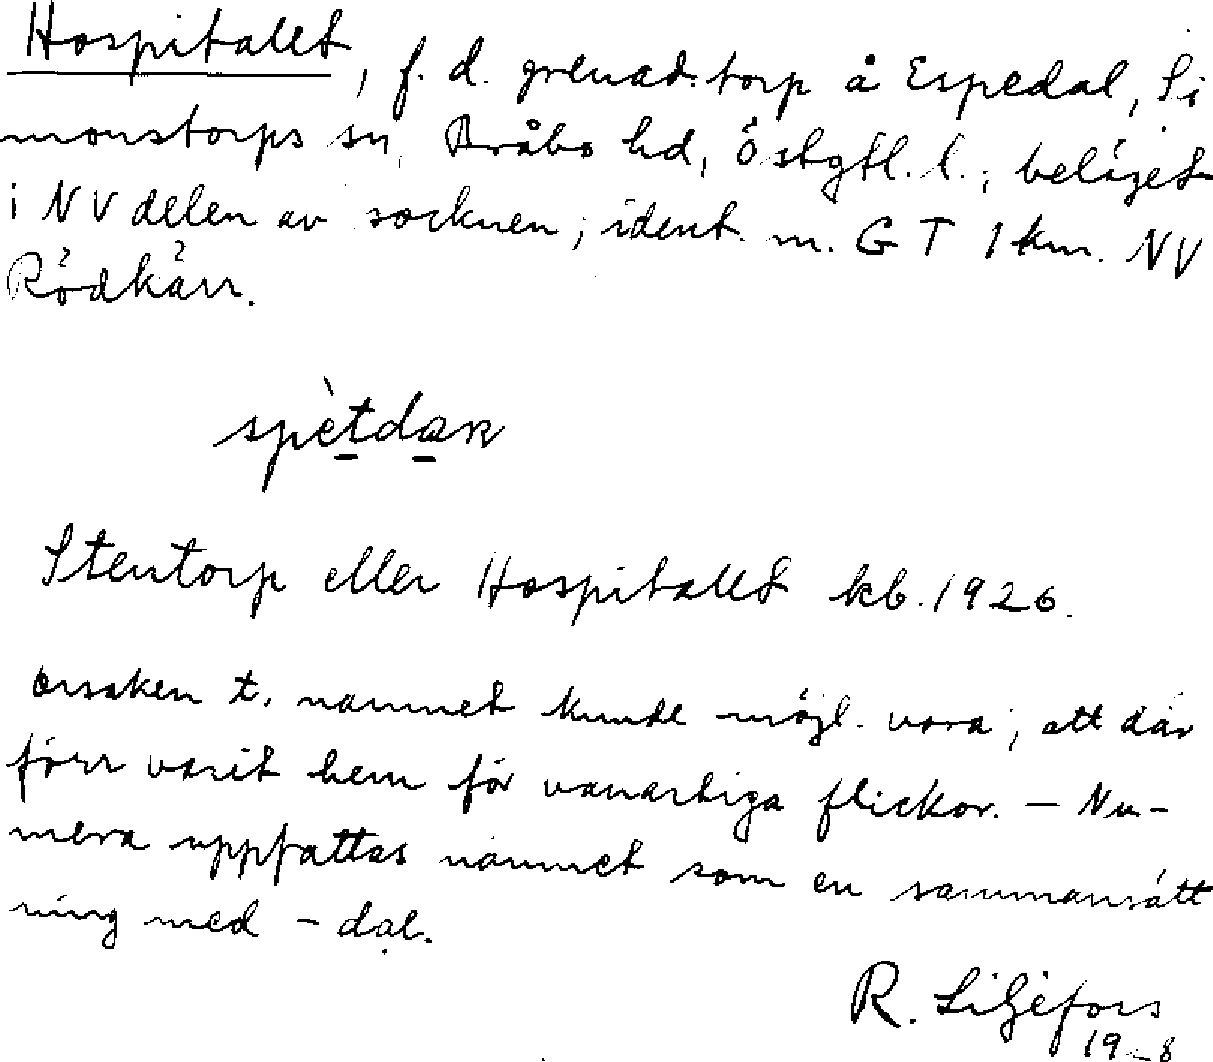 Hospitalet, f. d. grenad.torp å Espedal, Si
monstorps sn, Bråbo hd, Östgtl. l., beläget
i NV delen av socknen; ident. m. G T 1 km. NV
Rödkärr.
Stentorp eller Hospitalet kb. 1926.
Orsaken t. namnet kunde möjl. vara, att där
förr varit hem för vanartiga flickor. — Nu-
mera uppfattas namnet som en sammansätt
ning med - dal.
R. Liljefors